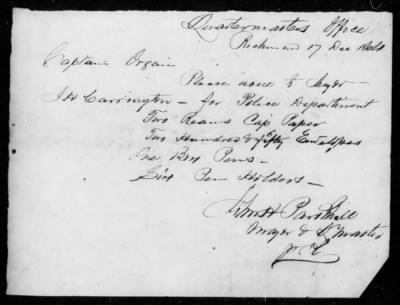 Quartermasters Office
Richmond 17 Dec 1864
Captain Organ
Please issue to Major
J H Carrington — for Police Department
Two Reams Cap Paper
Two Hundred & fifty Envelopes
One Box Pens —
Six Pen Holders —
Parkhill
Major & Q Master